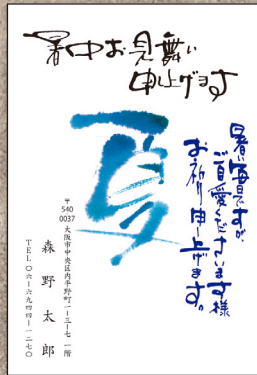 暑中お見舞い
申上げます
夏
暑い毎日ですが、
ご自愛くださいます様
お祈り申し上げます。
〒
540
0037
大阪市中央区内平野町一-三-七 一階
森野太郎
TEL〇六-六九四四-一二七〇